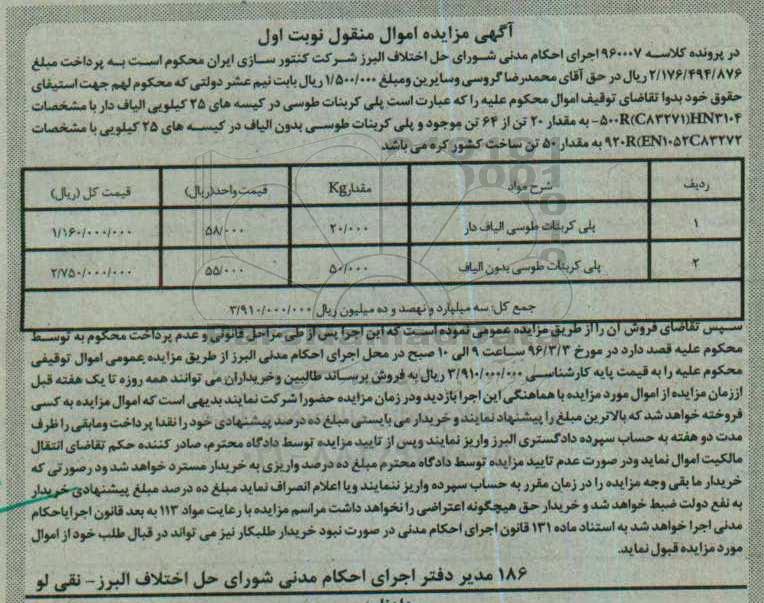 آگهی مزایده اموال منقول نوبت اول
در پرونده کلاسه ۹۶۰۰۰۷ اجرای احکام مدنی شورای حل اختلاف البرز شرکت کنتور سازی ایران محکوم است به پرداخت مبلغ
۲/۱۷۶/۴۹۴/۸۷۶ ریال در حق آقای محمدرضا گروسی و سایرین ومبلغ ۱/۵۰۰/۰۰۰ ریال بابت نیم عشر دولتی که محکوم لهم جهت استیفای
حقوق خود بدوا تقاضای توقیف اموال محکوم علیه را که عبارت است پلی کربنات طوسی در کیسه های ۲۵ کیلویی الیاف دار با مشخصات
۵۰۰R(C۸۳۲۷۱)HN۳۱۰۴- به مقدار ۲۰ تن از ۶۴ تن موجود و پلی کربنات طوسی بدون الیاف در کیسه های ۲۵ کیلویی با مشخصات
۹۲۰R(EN۱۰۵۲C۸۳۲۷۲ به مقدار ۵۰ تن ساخت کشور کره می باشد
ردیف شرح مواد مقدارKg قیمت واحد(ریال) قیمت کل (ریال)
۱ پلی کربنات طوسی الیاف دار ۲۰/۰۰۰ ۵۸/۰۰۰ ۱/۱۶۰/۰۰۰/۰۰۰
۲ پلی کربنات طوسی بدون الیاف ۵۰/۰۰۰ ۵۵/۰۰۰ ۲/۷۵۰/۰۰۰/۰۰۰
جمع کل: سه میلیارد و نهصد و ده میلیون ریال ۳/۹۱۰/۰۰۰/۰۰۰
سپس تقاضای فروش آن را از طریق مزایده عمومی نموده است که این اجرا پس از طی مراحل قانونی و عدم پرداخت محکوم به توسط
محکوم علیه قصد دارد در مورخ ۹۶/۳/۳ ساعت ۹ الی ۱۰ صبح در محل اجرای احکام مدنی البرز از طریق مزایده عمومی اموال توقیفی
محکوم علیه را به قیمت پایه کارشناسی ۳/۹۱۰/۰۰۰/۰۰۰ ریال به فروش برساند طالبین وخریداران می توانند همه روزه تا یک هفته قبل
اززمان مزایده از اموال مورد مزایده با هماهنگی این اجرا بازدید ودر زمان مزایده حضورا شرکت نمایند بدیهی است که اموال مزایده به کسی
فروخته خواهد شد که بالاترین مبلغ را پیشنهاد نمایند و خریدار می بایستی مبلغ ده درصد پیشنهادی خود را نقدا پرداخت ومابقی را ظرف
مدت دو هفته به حساب سپرده دادگستری البرز واریز نمایند وپس از تایید مزایده توسط دادگاه محترم، صادر کننده حکم تقاضای انتقال
مالکیت اموال نماید ودر صورت عدم تایید مزایده توسط دادگاه محترم مبلغ ده درصد واریزی به خریدار مسترد خواهد شد ودر صورتی که
خریدار ما بقی وجه مزایده را در زمان مقرر به حساب سپرده واریز ننمایند ویا اعلام انصراف نماید مبلغ ده درصد مبلغ پیشنهادی خریدار
به نفع دولت ضبط خواهد شد و خریدار حق هیچگونه اعتراضی را نخواهد داشت مراسم مزایده با رعایت مواد ۱۱۳ به بعد قانون اجرایاحکام
مدنی اجرا خواهد شد به استناد ماده ۱۳۱ قانون اجرای احکام مدنی در صورت نبود خریدار طلبکار نیز می تواند در قبال طلب خود از اموال
مورد مزایده قبول نماید.
۱۸۶ مدیر دفتر اجرای احکام مدنی شورای حل اختلاف البرز - نقی لو